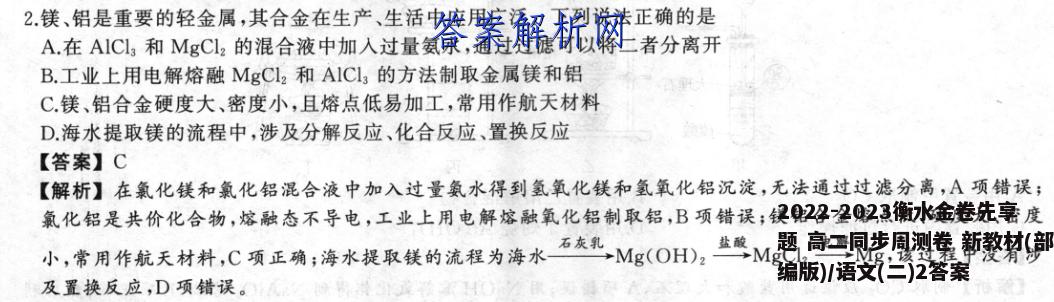 2.镁、铝是重要的轻金属,其合金在生产、生活中应用广泛。下列说法正确的是
A.在 AlCl₃ 和 MgCl₂ 的混合液中加入过量氨水,通过过滤可以将二者分离开
答案解析网
B.工业上用电解熔融 MgCl₂ 和 AlCl₃ 的方法制取金属镁和铝
C.镁、铝合金硬度大、密度小,且熔点低易加工,常用作航天材料
D.海水提取镁的流程中,涉及分解反应、化合反应、置换反应
【答案】C
【解析】在氯化镁和氯化铝混合液中加入过量氨水得到氢氧化镁和氢氧化铝沉淀,无法通过过滤分离,A 项错误;
氯化铝是共价化合物,熔融态不导电,工业上用电解熔融氧化铝制取铝,B 项错误;镁
密度
小,常用作航天材料,C 项正确;海水提取镁的流程为海水 石灰乳→Mg(OH)₂ 盐酸→MgCl₂ →Mg,该过程中没有涉
及置换反应,D 项错误。
2022-2023衡水金卷先享
题 高一同步周测卷 新教材(部
编版)/语文(二)2答案